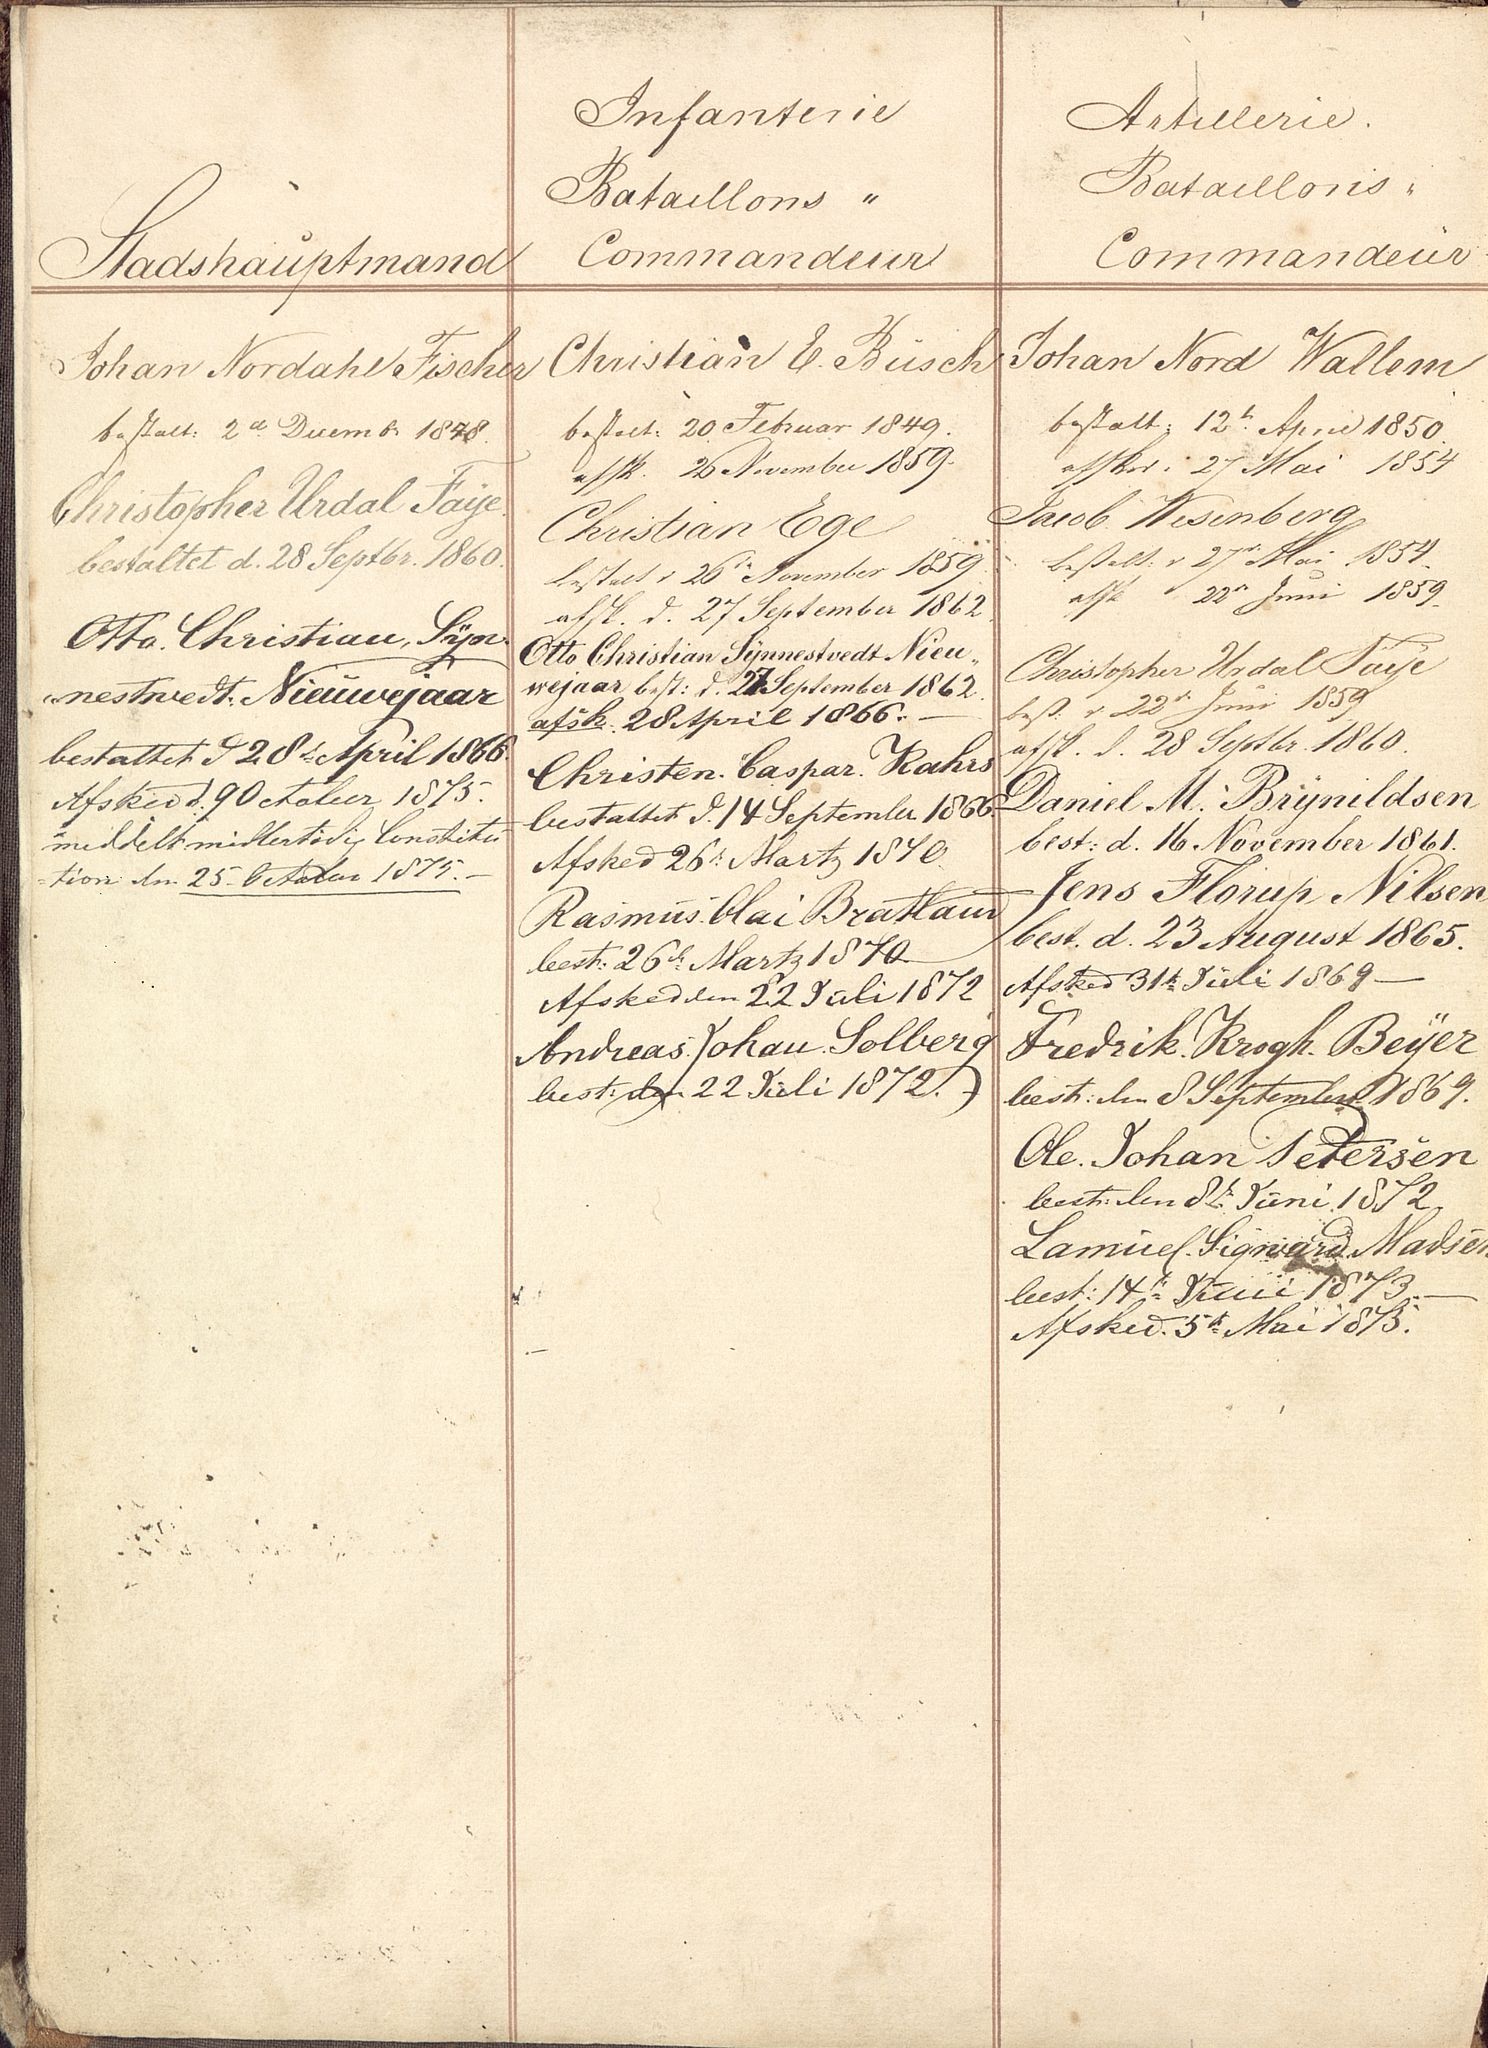 Stadshauptmand
Johan Nordahl Fischer
bestalt: 2d Decembr 1848.
Christopher Urdal Faye.
bestaltet d. 28 Septbr. 1860.
Otto. Christian, Syn„
„nestvedt. Nieuwejaar
bestaltet d 28de April 1866.
Afsked d. 9 October 1875.
meddelt midlertidig Constitu
=tion den 25 October 1875.—
Infanterie
Bataillons „
Commandeur
Christian E. Büsch
bestalt: 20 Februar 1849.
afsk. 26 November 1859.
Christian Ege
bestalt d 26de November 1859
afsk. d. 27 September 1862
Otto Christian Synnestvedt Nieu„
wejaar best: d. 27 September 1862.
afsk. 28 April 1866. —
Christen. Caspar. Kahrs
bestaltet d. 14 September 1866.
Afsked 26de Martz 1870
Rasmus. Olai Bratland
best: 26de Martz 1870—
Afsked den 22 Juli 1872
Andreas. Johan. Solberg
best: den 22 Juli 1872.
Artillerie.
Bataillons „
Commandeur
Johan Nord Wallem
bestalt: 12te April 1850.
afsked. 27 Mai 1854
Jacob Wesenberg
bestalt: d 27de Mai 1854.
afsk 22de Juni 1859.
Christopher Urdal Faye
best. d 22de Juni 1859
afsk. d. 28 Septbr. 1860.
Daniel M. Brynildsen
best: d. 16 November 1861.
Jens Florup Nilsen
best. d. 23 August 1865.
Afsked 31te Juli 1869—
Fredrik. Krogh. Beyer
best: den 8 September 1869.
Ole. Johan Petersen
best: den 8de Juni 1872
Samuel. Sigward. Madsen
best: 14de Juni 1873.—
Afsked. 5te Mai 1875.